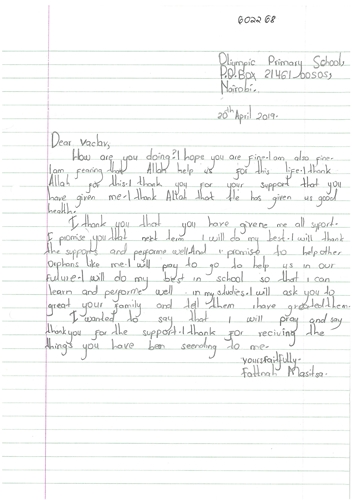 602268
Olympic Primary School
P.O.Box 21461 00505,
Nairobi.
20th April 2019.
Dear Vaclav,
How are you doing? I hope you are fine. I am also fine.
I am fearing that Allah help us for this life. I thank
Allah for this. I thank you for your support that you
have given me. I thank Allah that he has given us good
health.
I thank you that you have givene me all sport.
I promise you that next term I will do my best. I will thank
the supports and performe well. And I promise to help other
orphans like me. I will pray to go to help us in our
future. I will do my best in school so that I can
learn and performe well in my studies. I will ask you to
great your family and tell them I have greated them.
I wanted to say that I will pray and say
thank you for the support. I thank for reciving the
things you have been seending to me.
yours faitfully.
Fatinah Masitsa.